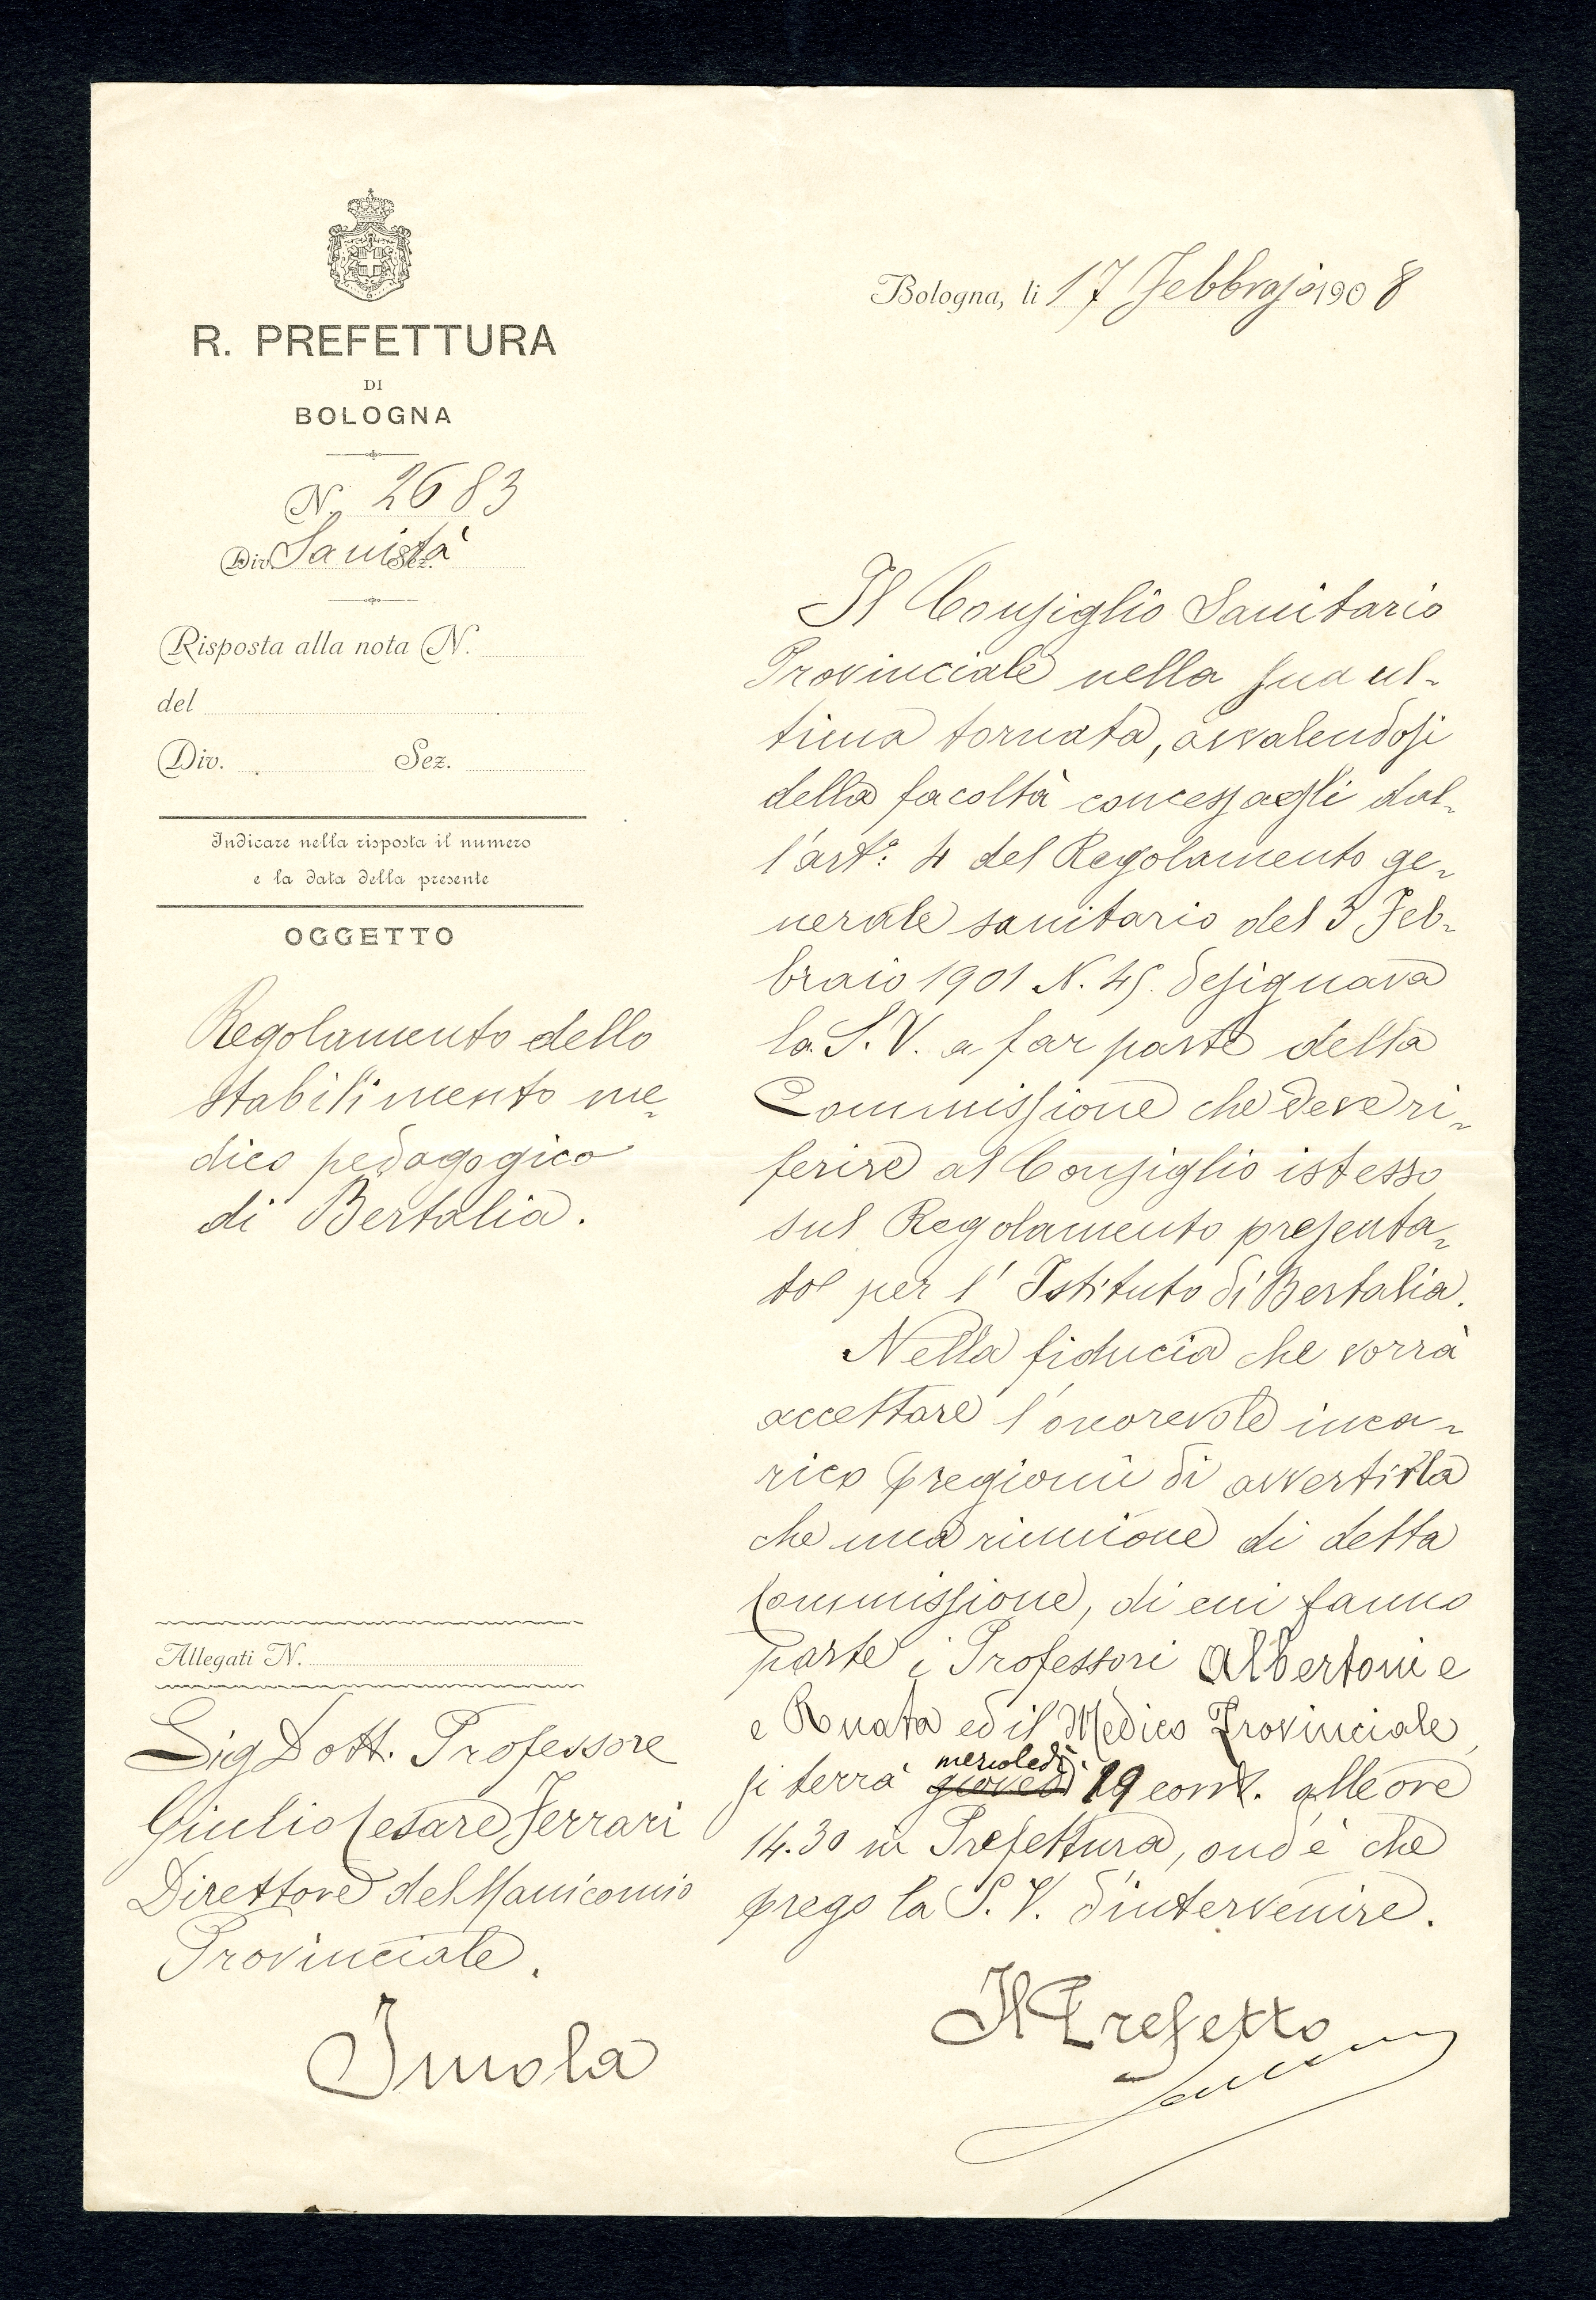 R. PREFETTURA
DI
BOLOGNA
N. 2683
Div. Sanità Sez.
Risposta alla nota N.
del
Div. Sez.
Indicare nella risposta il numero
e la data della presente
OGGETTO
Regolamento dello
stabilimento me-
dico pedagogico
di Bertalia.
Allegati N.
Sig Dott. Professore
Giulio Cesare Ferrari
Direttore del Manicomio
Provinciale.
Imola
Bologna, li 17 Febbrajo 1908
Il Consiglio Sanitario
Provinciale nella sua ul-
tima tornata, avvalendosi
della facoltà concessagli dal-
l'art°: 4 del Regolamento ge-
nerale sanitario del 3 Feb-
braio 1901 N. 45. designava
la S. V. a far parte della
Commissione che deve ri-
ferire al Consiglio istesso
sul Regolamento presenta-
to per l'Istituto di Bertalia.
Nella fiducia che vorrà
accettare l'onorevole inca-
rico pregiomi di avvertirla
che una riunione di detta
Commissione, di cui fanno
parte i Professori Albertoni e
e Ruata ed il Medico Provinciale,
si terrà giovedì mercoledì 19 corr. alle ore
14.30 in Prefettura, ond'è che
prego la S. V. d'intervenire.
Il Prefetto